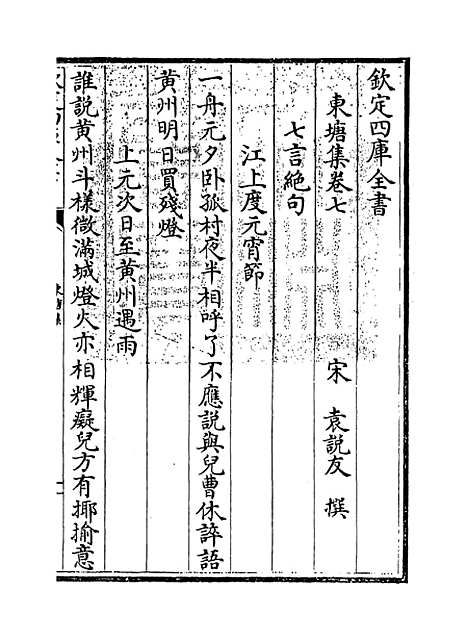 欽定四庫全書
東塘集卷七
宋 袁說友 撰
七言絶句
江上度元宵節
一舟元夕卧孤村夜半相呼了不應說與兒曹休誶語
黄州明日買殘燈
上元次日至黄州遇雨
誰説黄州斗様㣲滿城燈火亦相輝癡兒方有揶揄意